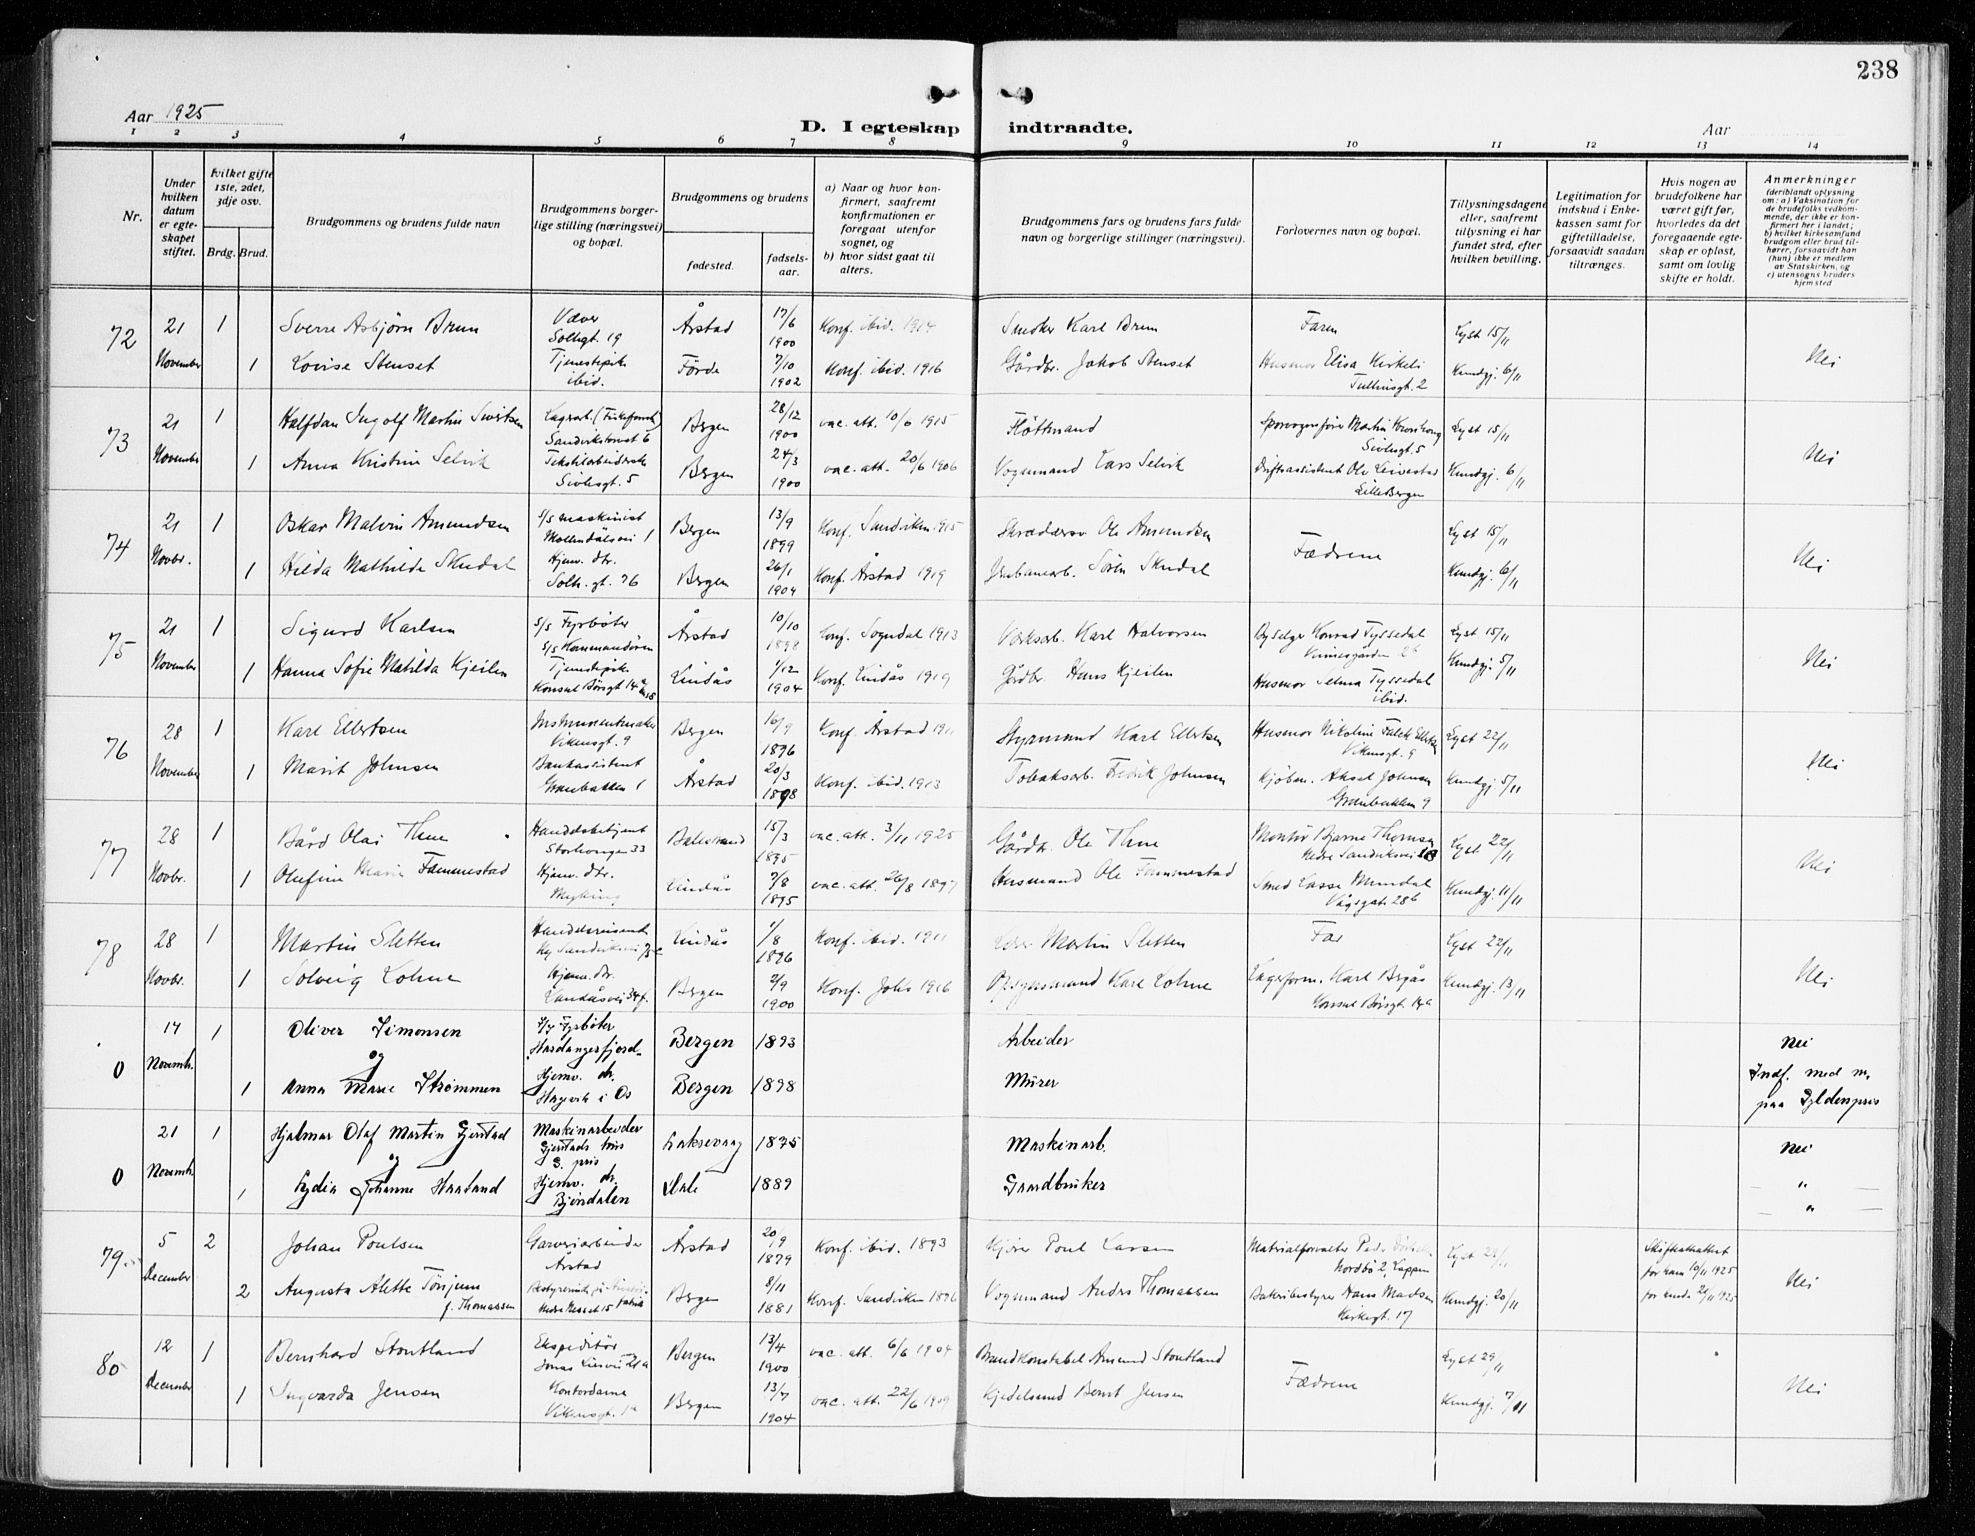 238
Aar 1925
D. I egteskap indtraadte.
Aar
1 2 3 4 5 6 7 8 9 10 11 12 13 14
Nr.
Under hvilken datum er egteskapet stiftet.
hvilket gifte 1ste, 2det, 3dje osv.
Brdg. Brud.
Brudgommens og brudens fulde navn
Brudgommens borgerlige stilling (næringsvei) og bopæl.
Brudgommens og brudens
fødested.
fødselsaar.
a) Naar og hvor konfirmert, saafremt konfirmationen er foregaat utenfor sognet, og b) hvor sidst gaat til alters.
Brudgommens fars og brudens fars fulde navn og borgerlige stillinger (næringsvei).
Forlovernes navn og bopæl.
Tillysningsdagene eller, saafremt tillysning ei har fundet sted, efter hvilken bevilling.
Legitimation for indskud i Enkekassen samt for giftetilladelse, forsaavidt saadan tiltrænges.
Hvis nogen av brudefolkene har været gift før, hvorledes da det foregaaende egteskap er opløst, samt om lovlig skifte er holdt.
Anmerkninger (deriblandt oplysning om: a) Vaksination for de brudefolks vedkommende, der ikke er konfirmert her i landet; b) hvilket kirkesamfund brudgom eller brud tilhører, forsaavidt han (hun) ikke er medlem av Statskirken, og c) utensogns bruders hjemsted
72 21 November 1 Sverre Asbjørn Brun Væver Solhgt. 19 Årstad 17/6 1900 Konf. ibid. 1914 Smeker Karl Brun Faren Lyst 15/11
1 Lovise Stenset Tjenestepike ibid. Förde 7/10 1902 Konf. ibid. 1916 Gårdbr. Jakob Stenset Husmor Elisa Kirkeli Tullinsgt. 2 Kundgj. 6/11 Nei
73 21 November 1 Halfdan Ingolf Martin Sivertsen Sandvikstorvet 6 Bergen 28/12 1900 vac. att. 10/6 1915 Fløttmand Martin Sivlesgt. 5 Lyst 15/11
1 Anna Kristine Selvik Tekstilarbeiderske Sivlesgt. 5 Bergen 24/3 1900 vac. att. 20/6 1906 Vognmand Lars Selvik Driftsassistent Ole Leivestad Lille Bergen Kundgj. 6/11 Nei
74 21 Novbr. 1 Oskar Malvin Amundsen S/S maskinist Møllendalsvei 1 Bergen 13/9 1899 Konf. Sandviken 1915 Ole Amundsen Fædrene Lyst 15/11
1 Hilda Mathilde Skudal Hjemv. dtr. Solh. gt. 76 Bergen 26/1 1904 Konf. Årstad 1919 Jernbanearb. Sören Skudal Kundgj. 6/11 Nei
75 21 November 1 Sigurd Karlsen S/S Fyrbøter S/S Kommandøren Årstad 10/10 1898 Konf. Sogndal 1913 Verksarb. Karl Halvorsen Konrad Tyssedal Lyst 15/11
1 Hanna Sofie Matilda Kjeilen Tjenestepike Konsul Børsgt 14 Lindås 1/12 1904 Konf. Lindås 1919 Gårdbr. Hans Kjeilen Husmor Selma Tyssedal ibid. Kundgj. 5/11 Nei
76 28 November 1 Karl Ellertsen Instrumentmaker Vikensgt. 9 Bergen 16/9 1896 Konf. Årstad 1911 Styrmand Karl Ellertsen Husmor Nikoline Falck Ellertsen Vikensgt. 9 Lyst 22/11
1 Marit Johnsen Bankassistent Granbakken 1 Årstad 20/3 1898 Konf. ibid. 1913 Tobaksarb. Fedrik Johnsen Kjøbm. Aksel Johnsen Granbakken 9 Kundgj. 5/11 Nei
77 28 Novbr. 1 Bård Olai Thue Handelsbetjent Storhaugen 33 Balestrand 15/3 1895 vac. att. 3/11 1925 Gårdbr. Ole Thue Montör Bjarne Thomsen Nedre Sandviksvei Lyst 22/11
1 Olufine Marie Fammestad Hjemv. dtr. Myking Lindås 7/8 1895 vac. att. 26/8 1897 Husmand Ole Fammestad Smed Lasse Mundal Vågsgate 28b Kundgj. 11/11 Nei
78 28 Novbr. 1 Martin Sletten Handelsreisende Ny Sandviksvei Lindås 1/8 1896 Konf. ibid. 1911 Martin Sletten Far Lyst 22/11
1 Solveig Lohne Hjemv. dtr. Landåsvei 34 f. Bergen 2/9 1900 Konf. Johs 1916 Opsynsmand Karl Lohne Lagerform. Karl Bergås Konsul Børsgt. 14a Kundgj. 13/11 Nei
0 14 Novemb. 1 Oliver Simonsen S/S Fyrbøter Hardangerfjord Bergen 1893 Arbeider Nei
og
1 Anna Marie Strømmen Hjemv. dt. Hagevik i Os Bergen 1898 Murer Indf. med nr. paa Gyldenpris
0 21 Novemb. 1 Hjalmar Olaf Martin Gjerstad Maskinarbeider Gjerstads hus G. pris Laksevaag 1875 Maskinarb. Nei
og
1 Lydia Johanne Haaland Hjemv. dt. Bjørndalen 1889 Gaardbruker " "
79 5 December 2 Johan Poulsen Garveriarbeider Årstad Årstad 20/9 1879 Konf. ibid. 1893 Kjører Poul Larsen Materialforvalter Peder Nordbø 2, Lappen
2 Augusta Alette Tönjum f. Thomassen Bergen 8/11 1881 Konf. Sandviken 1896 Vognmand Anders Thomassen Bakeribestyrer Hans Madsen Kirkegt. 17 Kundgj. 20/11 Skifteattest for ham 10/11 1925 for hende 1925 Nei
80 12 December 1 Bernhard Stoutland Ekspeditör Jonas Liesvei 21a Bergen 13/4 1900 vac. att. 6/6 1904 Brandkonstabel Amund Stoutland Fædrene Lyst 29/11
1 Ingvarda Jensen Kontordame Vikensgt. 1a Bergen 13/7 1904 vac. att. 22/6 1909 Kjedelsmed Bernt Jensen Kundgj. 7/11 Nei